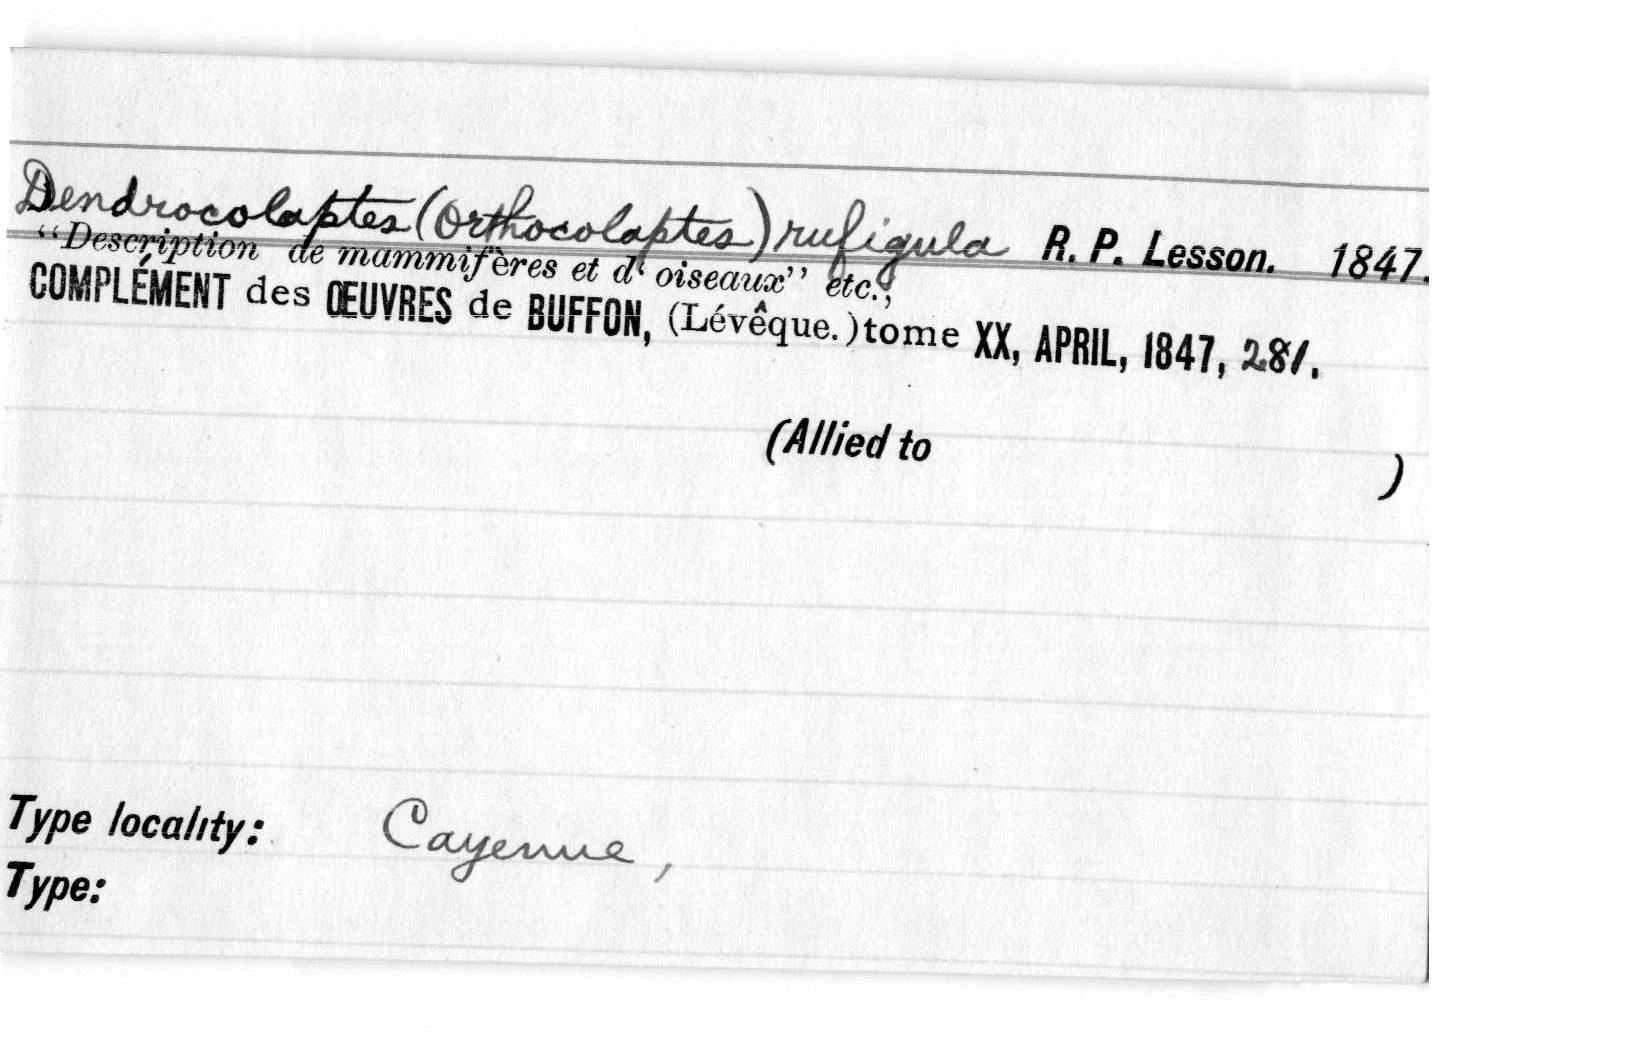 Dendrocolaptes (Orthocolaptes) rufigula R. P. Lesson. 1847.
“Description de mammifères et d‘ oiseaux” etc.,
COMPLÉMENT des ŒUVRES de BUFFON, (Lévêque.) tome XX, APRIL, 1847, 281.
(Allied to )
Type locality: Cayenne,
Type: